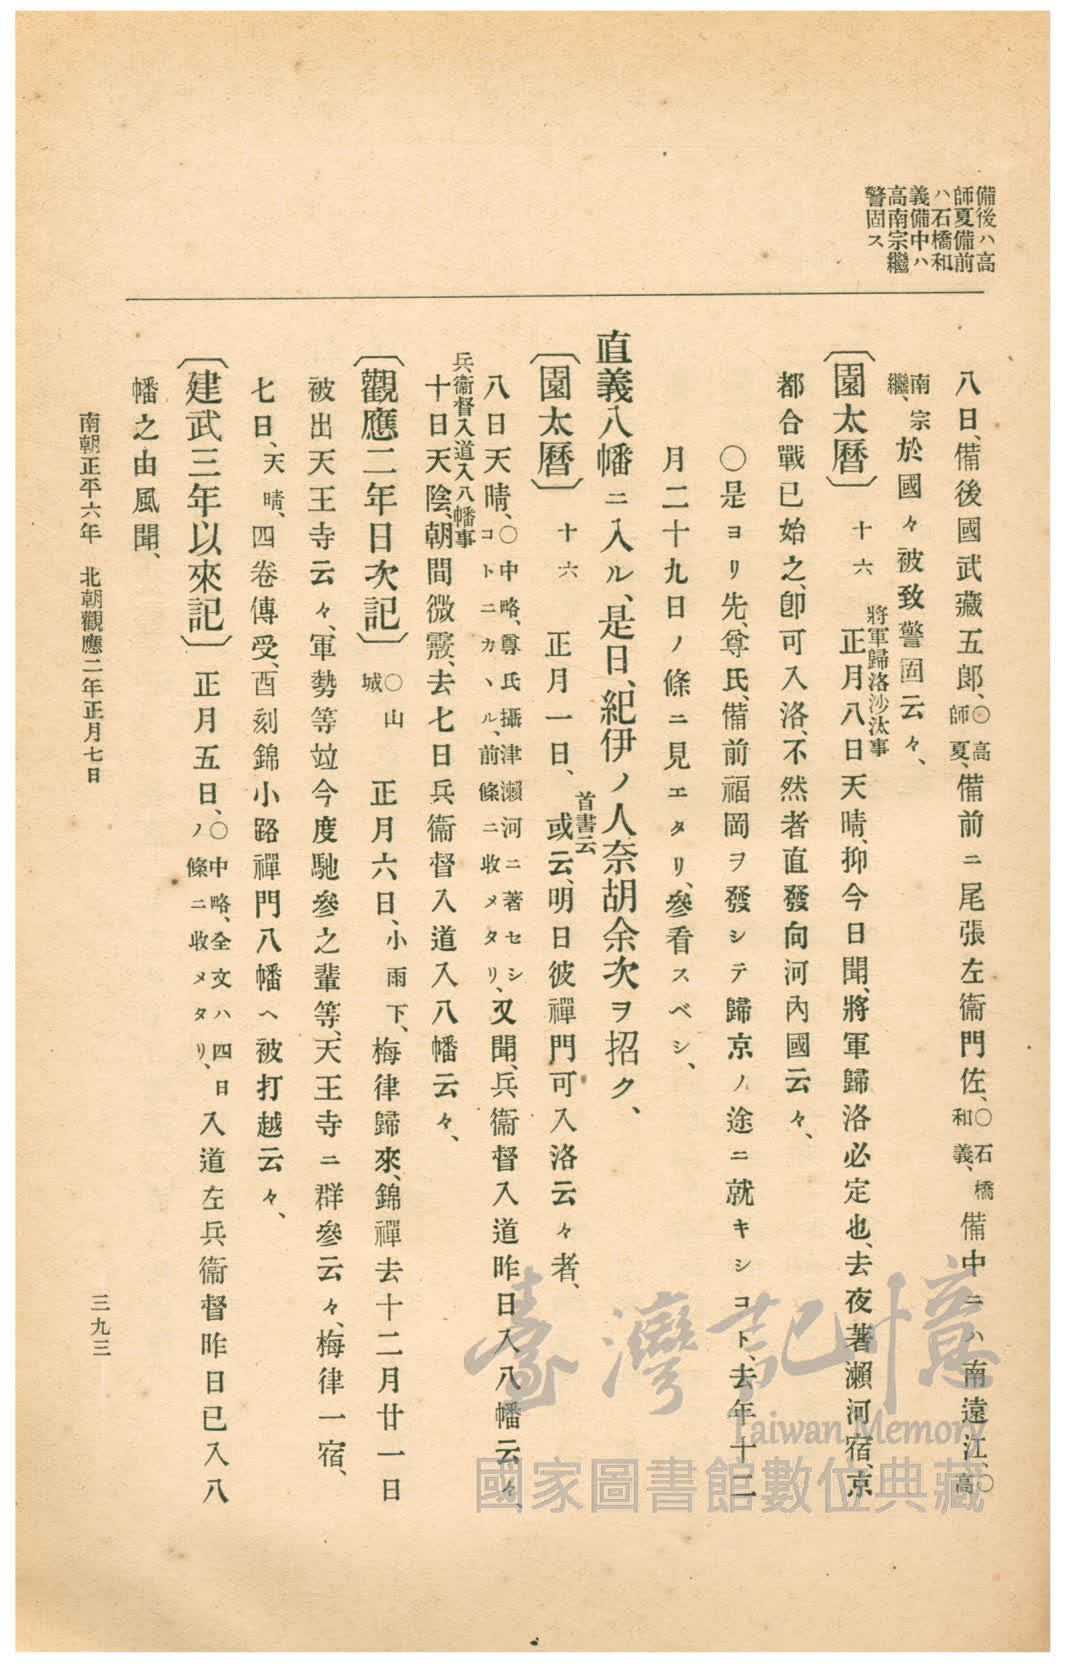 備後ハ高
師夏備前
ハ石橋和
義備中ハ
高南宗繼
警固ス
八日、備後國武藏五郎、〇高師夏、備前ニ尾張左衞門佐、〇石橋和義、備中ニハ南遠江、〇高
南宗繼、於國々被致警固云々、
將軍歸洛沙汰事
〔園太曆〕十六 正月八日天晴、抑今日聞、將軍歸洛必定也、去夜著瀨河宿、京
都合戰已始之、卽可入洛、不然者直發向河內國云々、
〇是ヨリ先、尊氏、備前福岡ヲ發シテ歸京ノ途ニ就キシコト、去年十二
月二十九日ノ條ニ見エタリ、參看スベシ、
直義八幡ニ入ル、是日、紀伊ノ人奈胡余次ヲ招ク、
首書云
〔園太曆〕十六 正月一日、或云、明日彼禪門可入洛云々者、
八日天晴、〇中略、尊氏攝津瀨河ニ著セシコトニカヽル、前條ニ收メタリ、又聞、兵衞督入道昨日入八幡云々、
兵衞督入道入八幡事
十日天陰、朝間微霰、去七日兵衞督入道入八幡云々、
〔觀應二年日次記〕〇山城 正月六日、小雨下、梅律歸來、錦禪去十二月廿一日
被出天王寺云々、軍勢等竝今度馳參之輩等、天王寺ニ群參云々、梅律一宿、
七日、天晴、四卷傳受、酉刻錦小路禪門八幡ヘ被打越云々、
〔建武三年以來記〕正月五日、〇中略、全文ハ四日ノ條ニ收メタリ、入道左兵衞督昨日已入八
幡之由風聞、
南朝正平六年 北朝觀應二年正月七日
三九三
臺灣記憶
Taiwan Memory
國家圖書館數位典藏